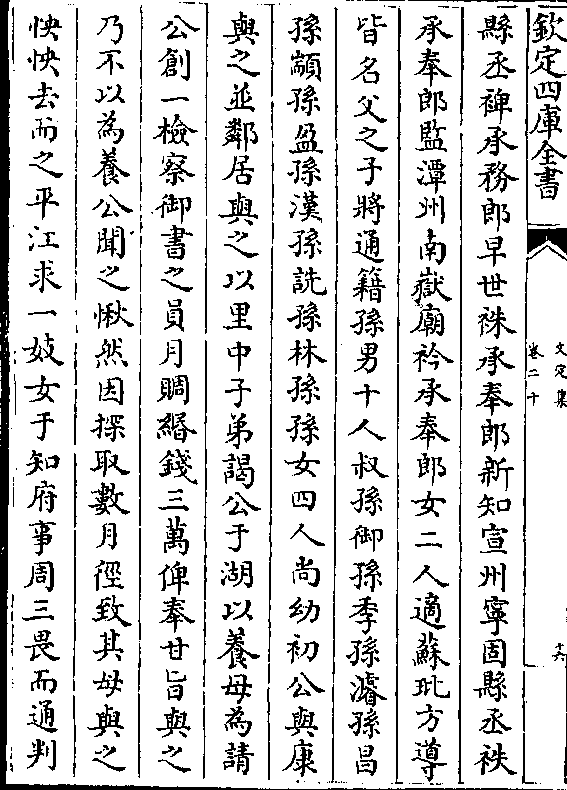 欽定四庫全書
文定集
卷二十
十六
縣丞裨承務郎早世祩承奉郎新知宣州寧固縣丞袟
承奉郎監潭州南嶽廟衿承奉郎女二人適蘇玭方導
皆名父之子將通籍孫男十人叔孫御孫季孫濬孫昌
孫顓孫盈孫漢孫詵孫林孫孫女四人尚幼初公與康
與之並鄰居與之以里中子弟謁公于湖以養母為請
公創一檢察御書之員月賙緡錢三萬俾奉甘旨與之
乃不以為養公聞之愀然因探取數月徑致其母與之
怏怏去而之平江求一妓女于知府事周三畏而通判